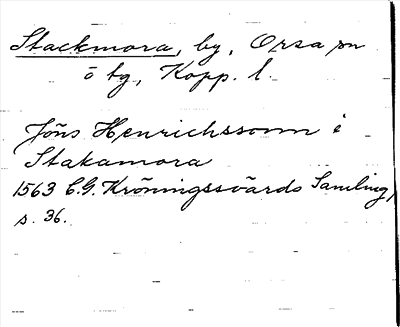 Stackmora, by, Orsa sn
ö tg, Kopp. l.
Jöns Henrichssonn i
Stakamora
1563 C.G. Kröningssvärds Samling,
s. 36.